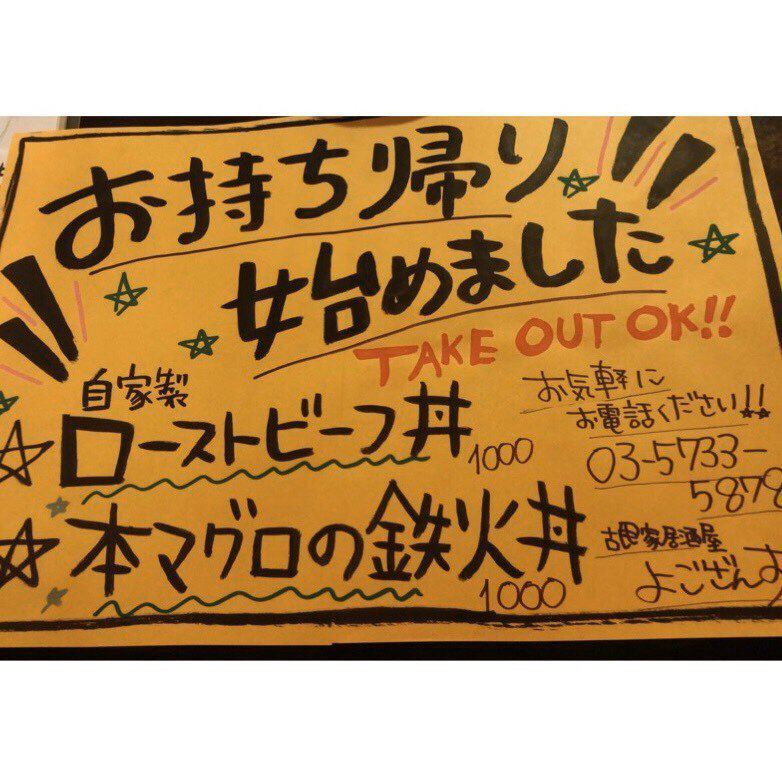 お持ち帰り
始めました
TAKE OUT OK!!
自家製
ローストビーフ丼
1000
本マグロの鉄火丼
1000
お気軽に
お電話ください!!
03-5733-
5879
古民家居酒屋
よござんす